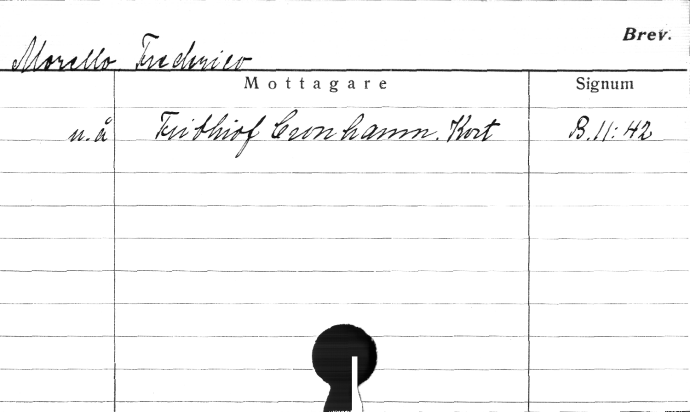 Brev.
Morello Frederico
Mottagare Signum
u.å Frithiof Cronhamn. Kort B.11:42